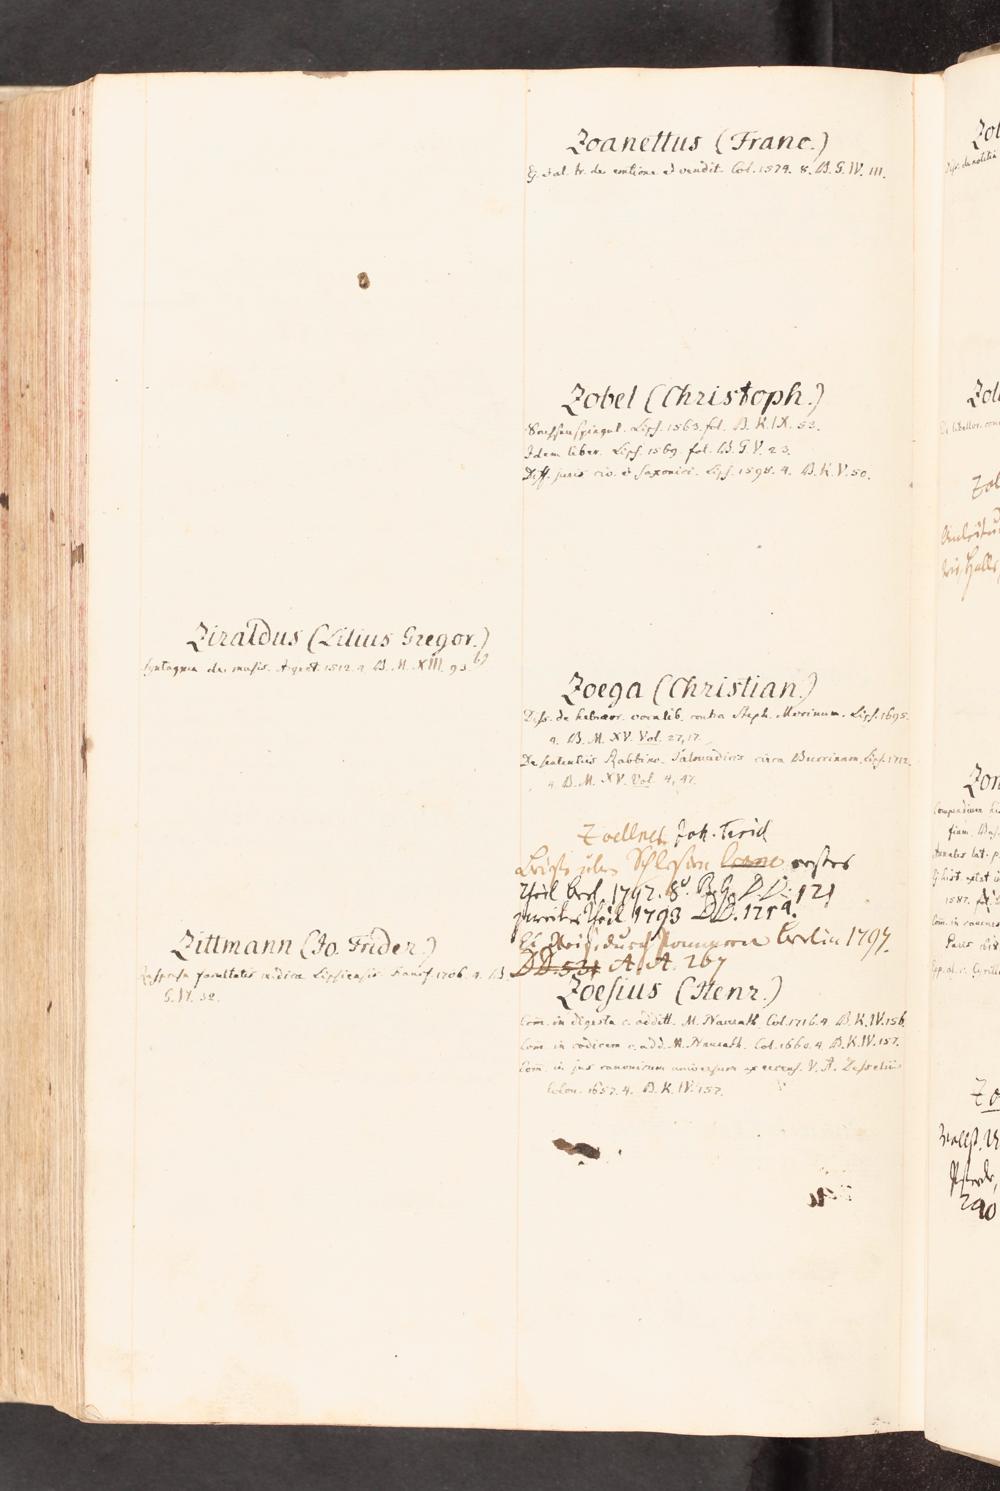 Ziraldus (Lilius Gregor.)
Syntagma de musis. Argent. 1512. 4. B. M. XIII. 93. b)
Zittmann (Jo. Frider.)
Responsa facultatis medicae Lipsiensis. Francof. 1706. 4. B.
G. VI. 32.
Zoanettus (Franc.)
Ej. & al. tr. de emtione et vendit. Col. 1574. 8. B. G. IV. 111.
Zobel (Christoph.)
Sachsenspiegel. Lips. 1563. fol. B. K. IX. 53.
Idem liber. Lips. 1569. fol. B. G. V. 23.
Diff. juris civ. et Saxonici. Lips. 1598. 4. B. K. V. 50.
Zoega (Christian.)
Diss. de hebraeor. vocalib. contra Steph. Morinum. Lips. 1695.
4. B. M. XV. Vol. 27, 17.
De sententiis Rabbino-Talmudicis circa Lips. 1712.
4. B. M. XV. Vol. 4, 47.
Zoellner Joh. Frid
Briefe über Schlesien erster
Theil Berl. 1792. 8º. B. G. D. D. 121
zweiter Theil 1793 DD.
Ej. Reise durch Pommern Berlin 1797.
DD. 531 A. A. 267
Zoesius (Henr.)
Com. in digesta c. additt. M. Naurath. Col. 1716. 4. B. K. IV. 156.
Com. in codicem c. add. M. Naurath. Col. 1660. 4. B. K. IV. 157.
Com. in jus canonicum universum ex recens. V. A.
Colon. 1657. 4. B. K. IV. 157.